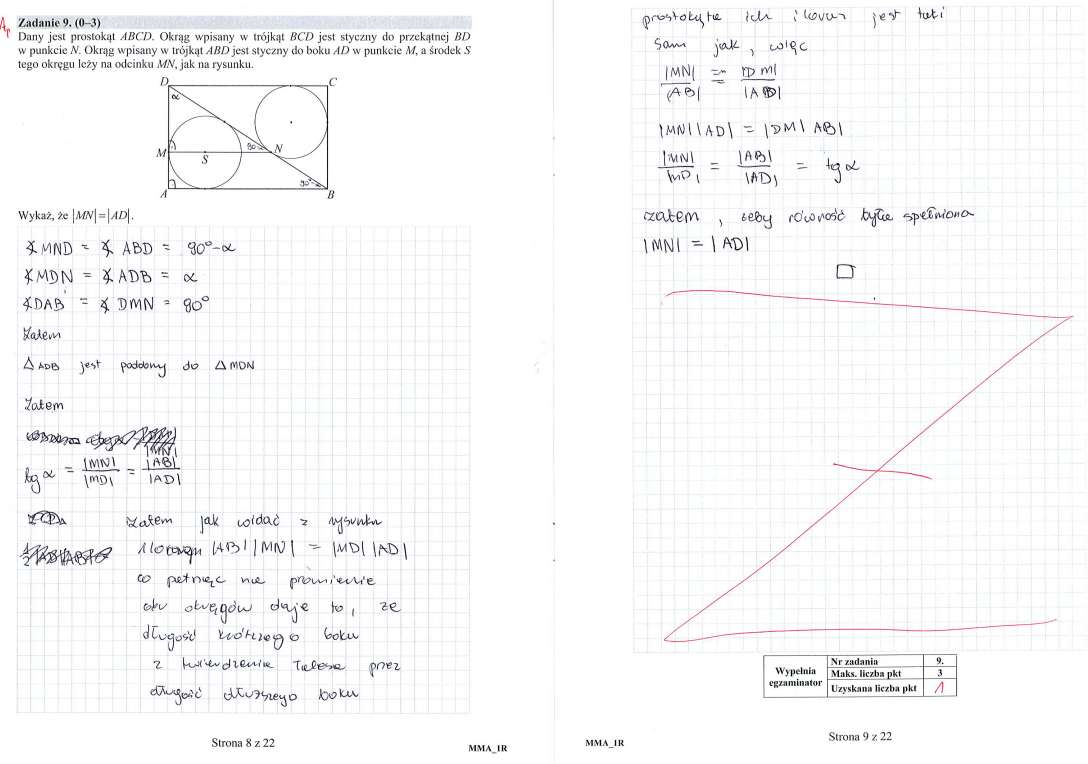 Zadanie 9. (0–3)
Dany jest prostokąt ABCD. Okrąg wpisany w trójkąt BCD jest styczny do przekątnej BD
w punkcie N. Okrąg wpisany w trójkąt ABD jest styczny do boku AD w punkcie M, a środek S
tego okręgu leży na odcinku MN, jak na rysunku.
D
C
α
M
S
90-α
N
90-α
A
B
Wykaż, że |MN|=|AD|.
∡MND = ∡ ABD = 90°-α
∡MDN = ∡ADB = α
∡DAB = ∡ DMN = 90°
Zatem
△ADB jest poddony do △MDN
Zatem
tg α = |MN| / |MD| = |AB| / |AD|
zatem jak widać z rysunku
|AB| |MN| = |MD| |AD|
co
promienie
obu okręgów daje to, że
długość krótszego boku
z twierdzenia Talesa przez
długość dłuższego boku
Strona 8 z 22
MMA_1R
ich iloraz jest taki
sam jak, więc
|MN| / |AB| = |DM| / |AD|
|MN| |AD| = |DM| AB|
|MN| / |MD| = |AB| / |AD| = tg α
zatem, żeby równość była spełniona
|MN| = |AD|
Wypełnia egzaminator
Nr zadania 9.
Maks. liczba pkt 3
Uzyskana liczba pkt 1
MMA_1R
Strona 9 z 22